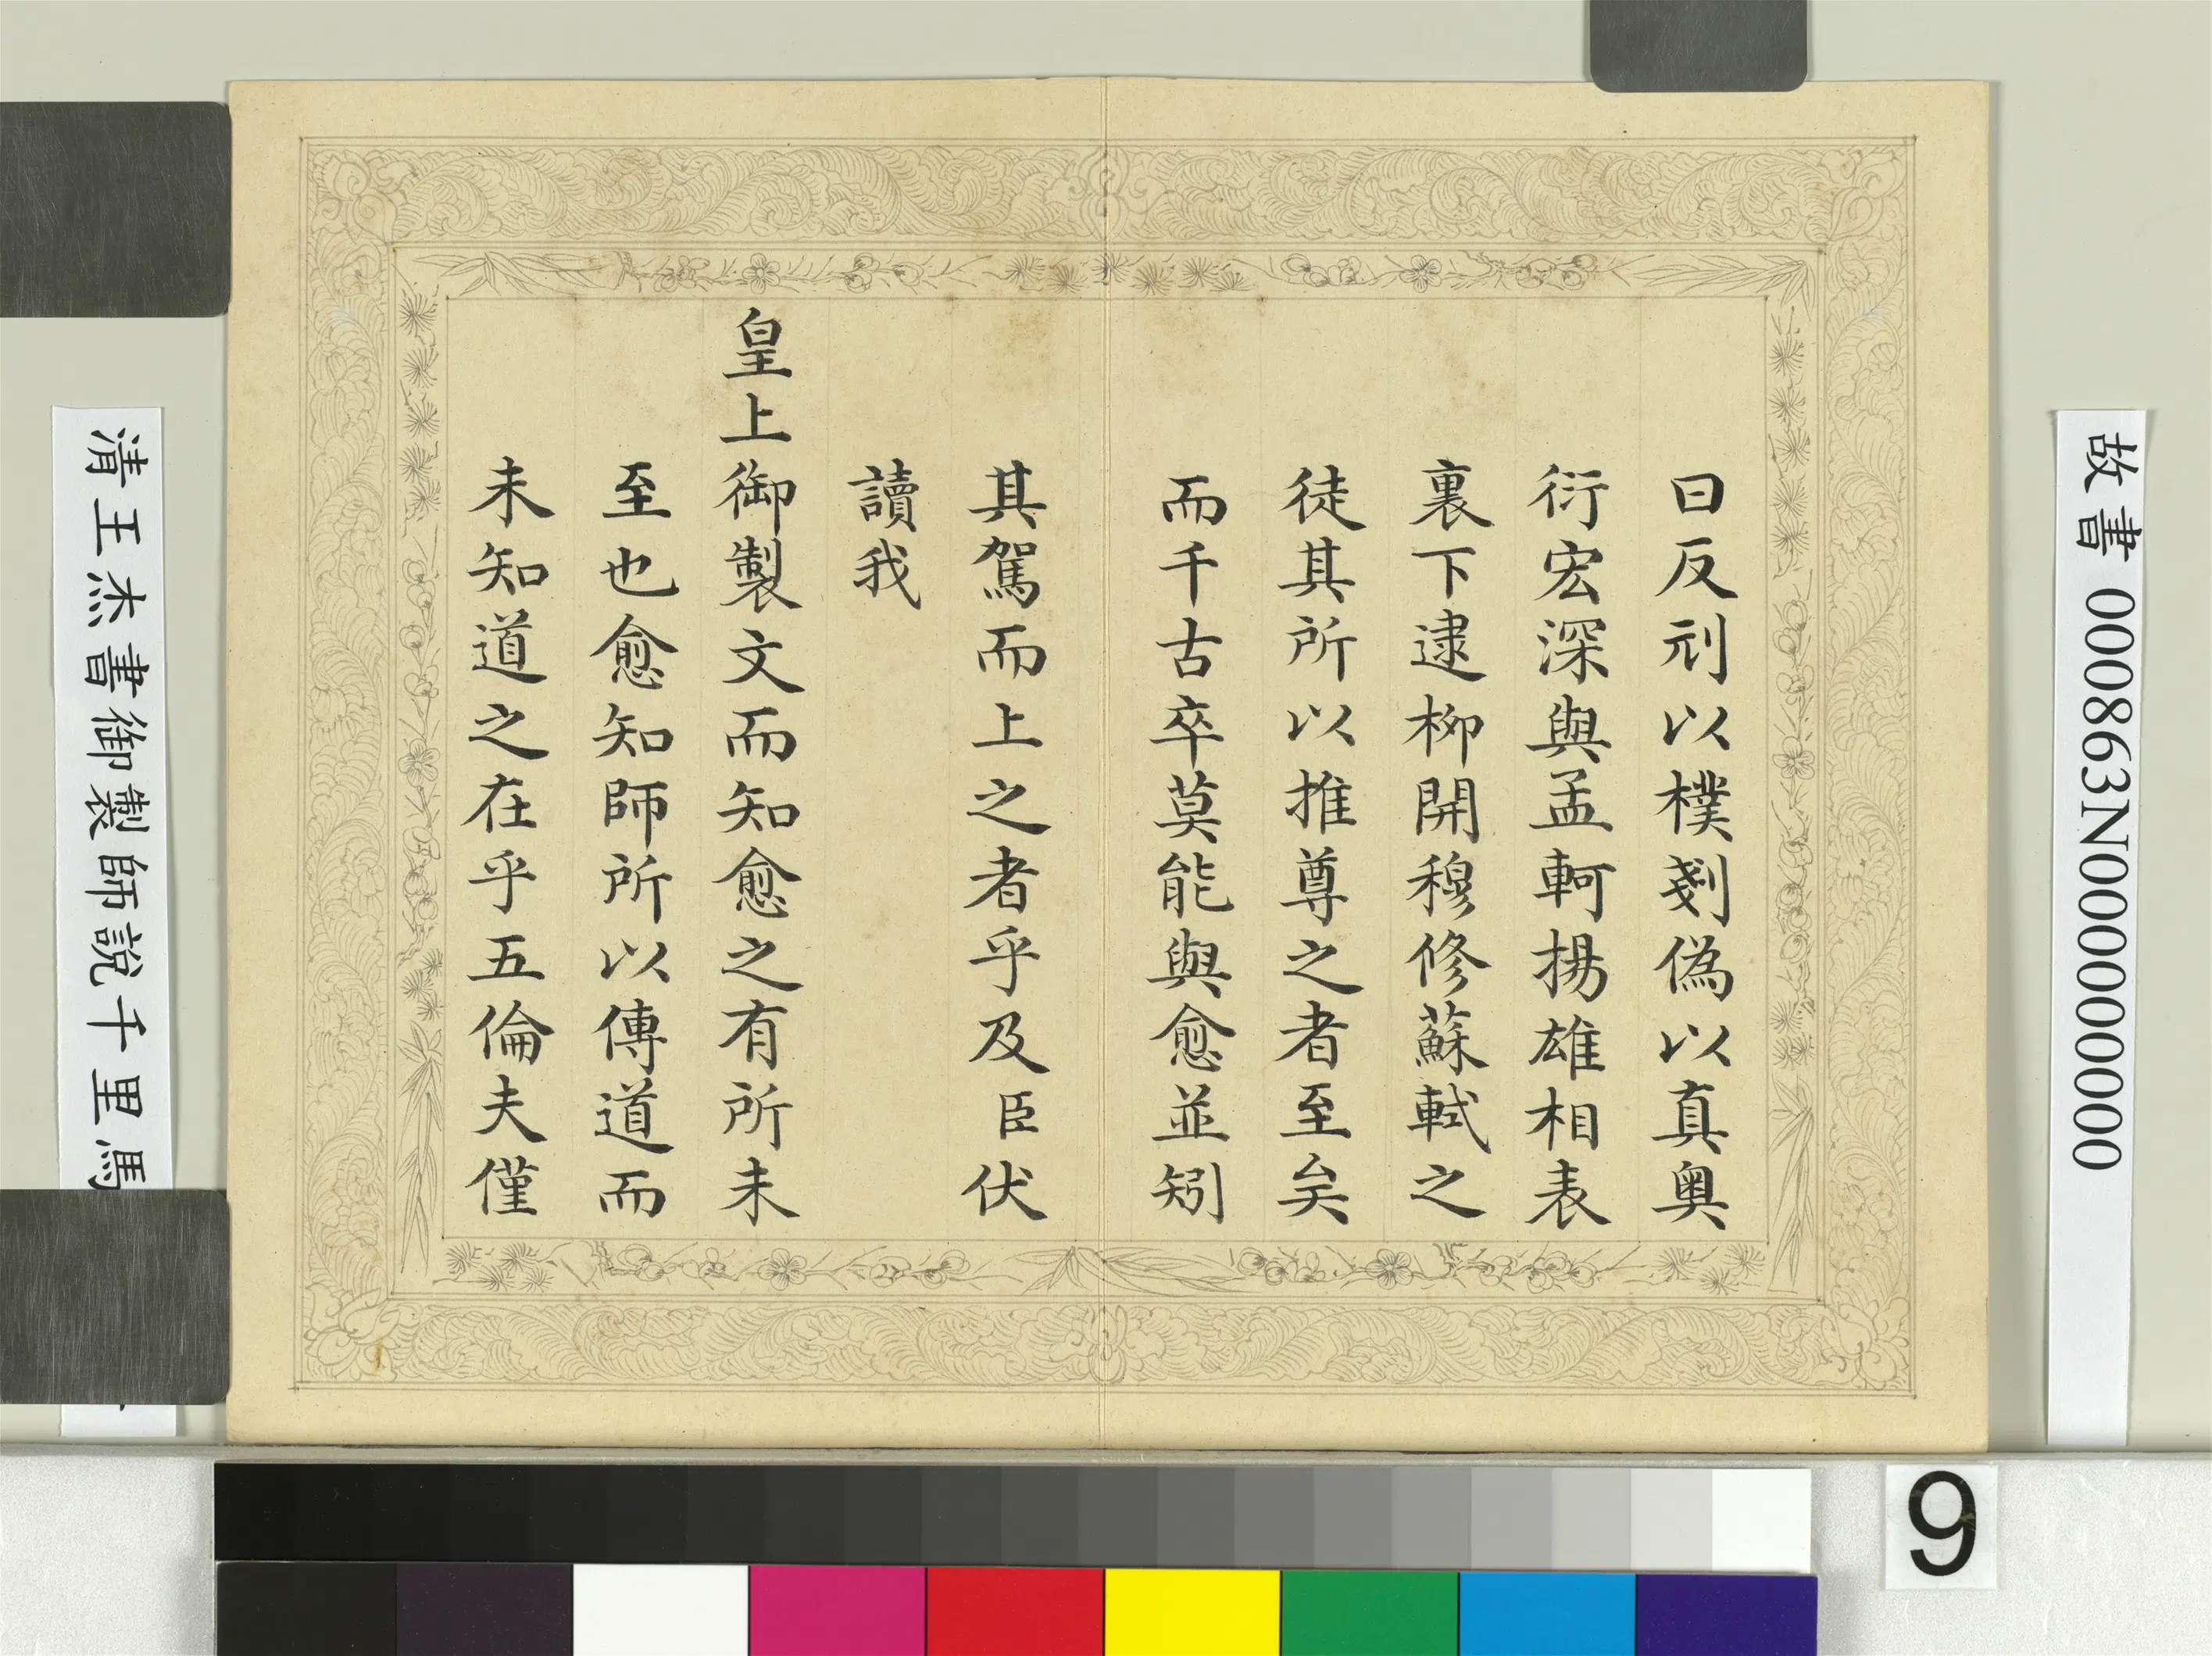 曰反刓以樸剗偽以真奧
衍宏深與孟軻揚雄相表
裏下逮柳開穆修蘇軾之
徒其所以推尊之者至矣
而千古卒莫能與愈並矧
其駕而上之者乎及臣伏
讀我
皇上御製文而知愈之有所未
至也愈知師所以傳道而
未知道之在乎五倫夫僅
故書 000863N000000000
清王杰書御製師說千里馬
9